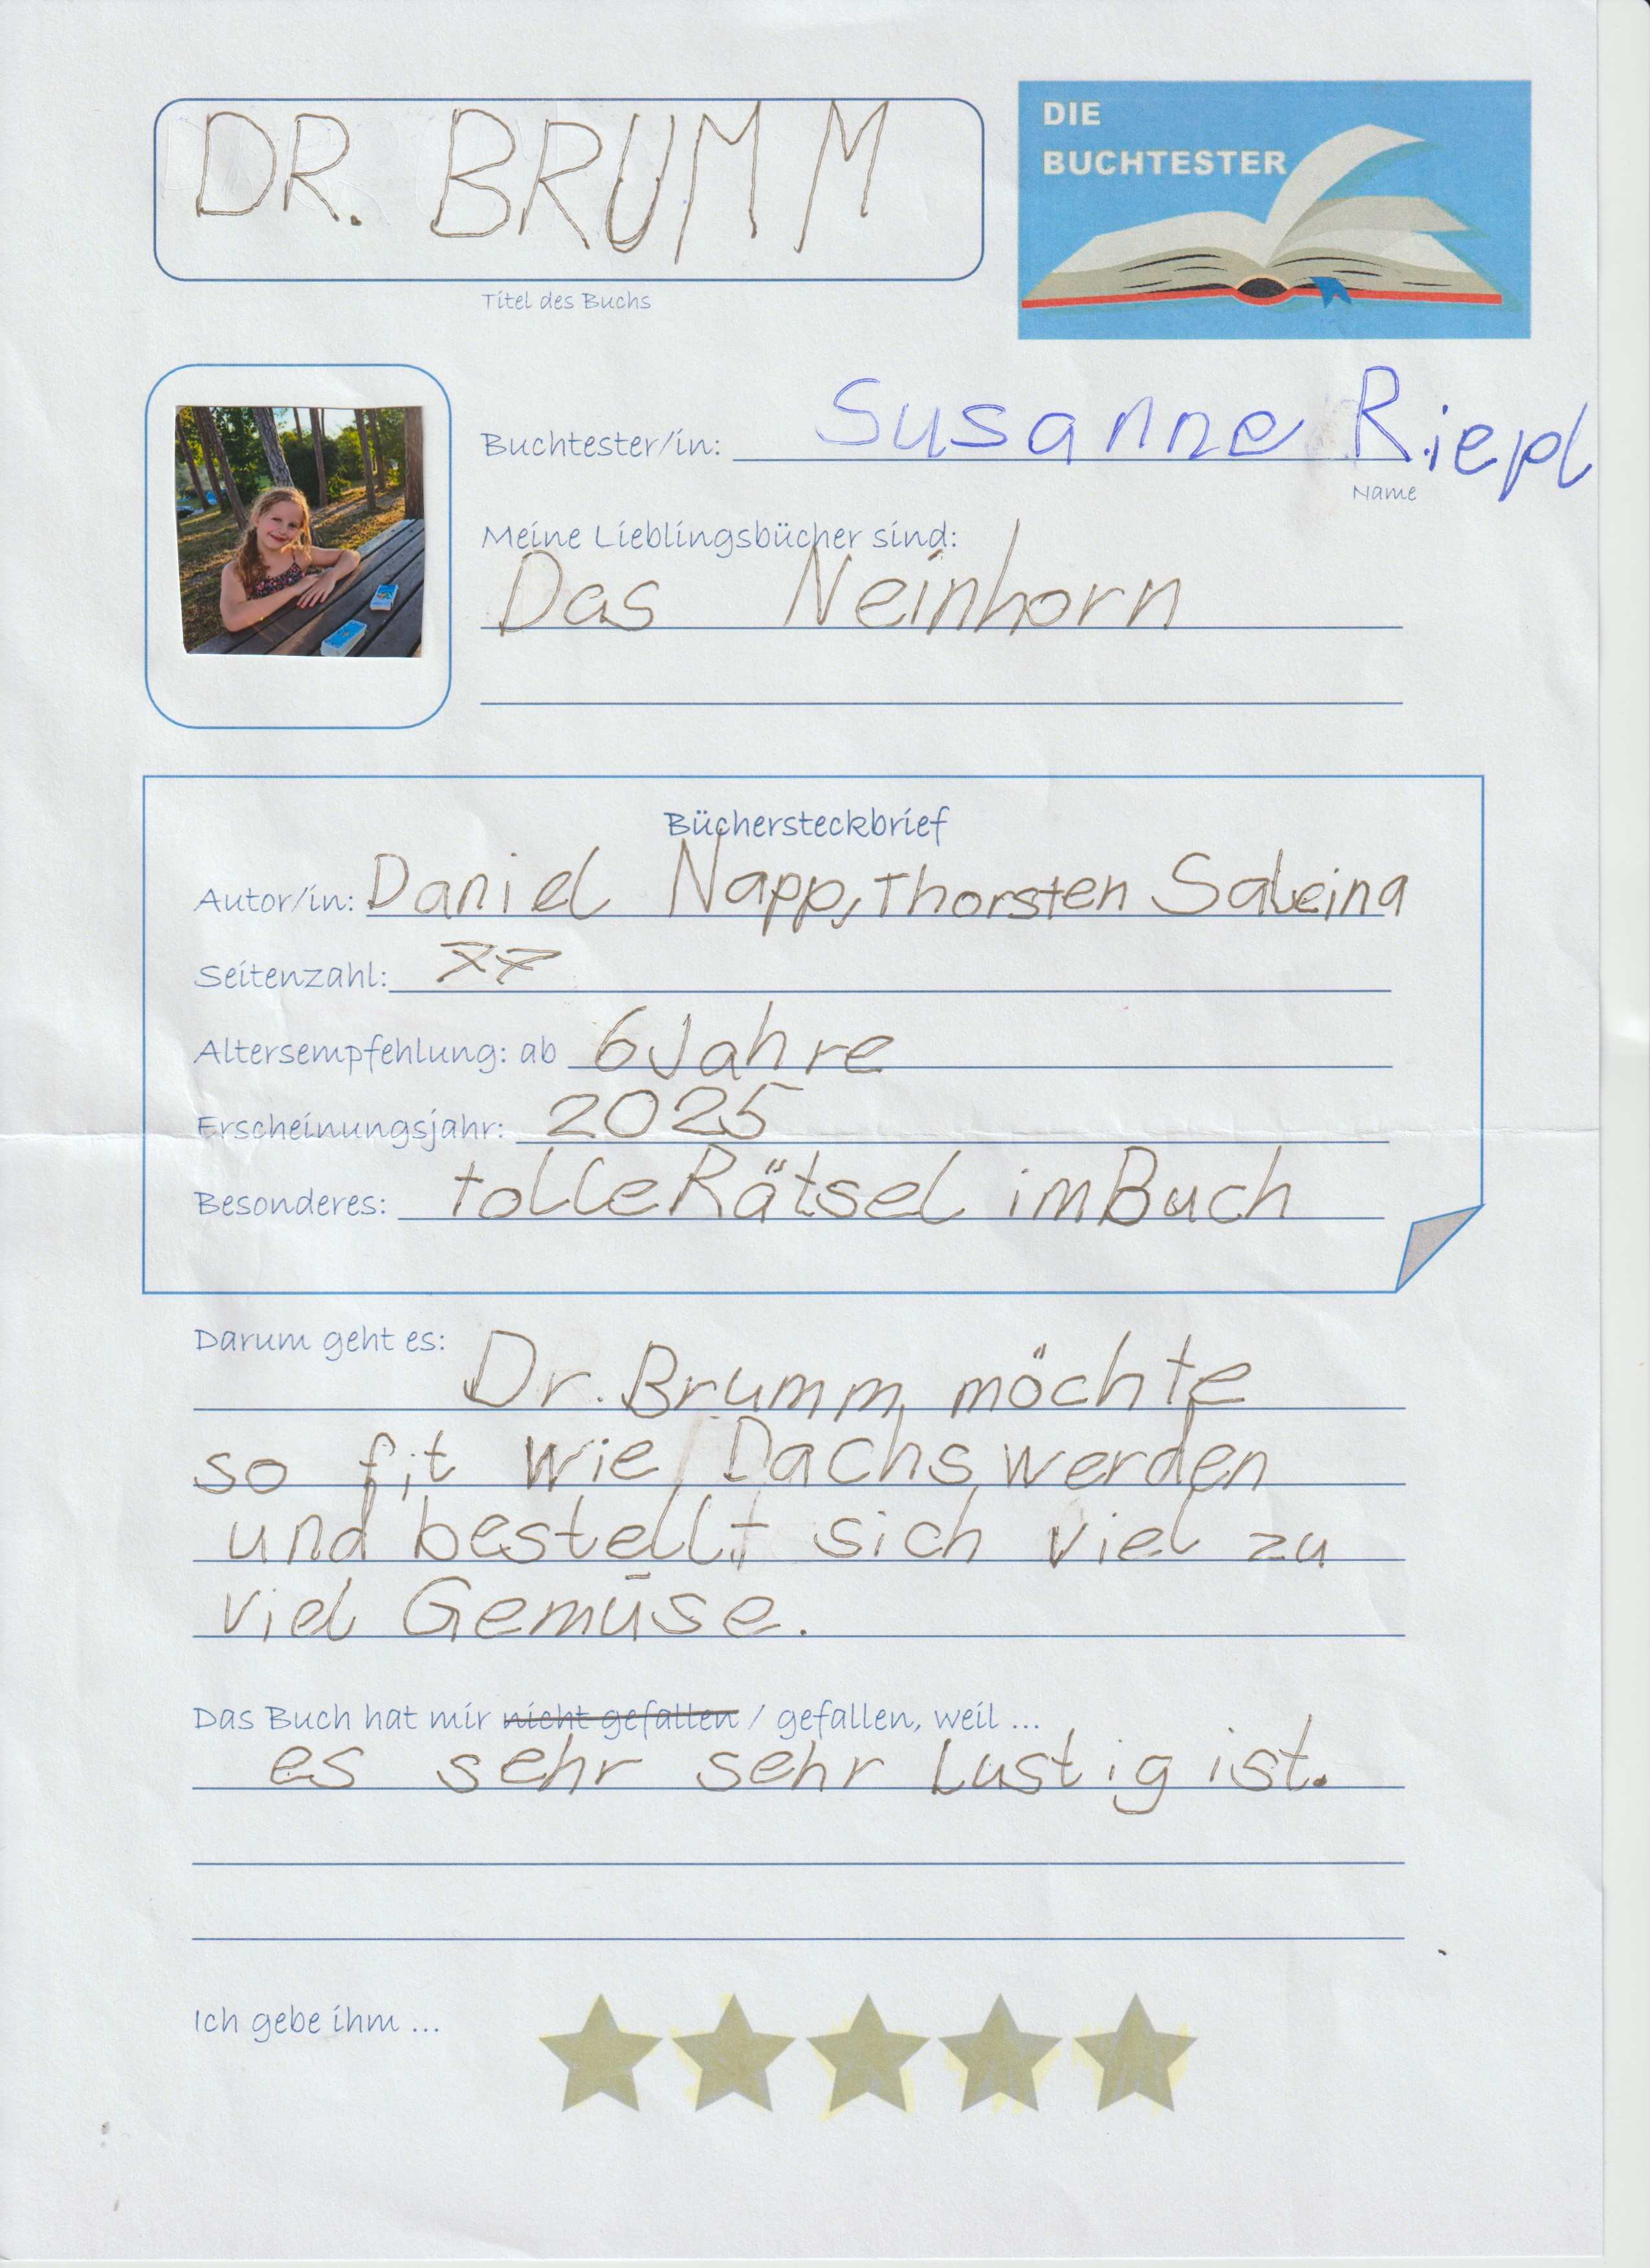 DR. BRUMM
DIE
BUCHTESTER
Titel des Buchs
Buchtester/in: Susanne Riepl
Name
Meine Lieblingsbücher sind:
Das Neinhorn
Büchersteckbrief
Autor/in: Daniel Napp, Thorsten Saleina
Seitenzahl: 77
Altersempfehlung: ab 6 Jahre
Erscheinungsjahr: 2025
Besonderes: tolle Rätsel im Buch
Darum geht es:
Dr. Brumm möchte
so fit wie Dachs werden
und bestellt sich viel zu
viel Gemüse.
Das Buch hat mir nicht gefallen / gefallen, weil ...
es sehr sehr lustig ist.
Ich gebe ihm ...